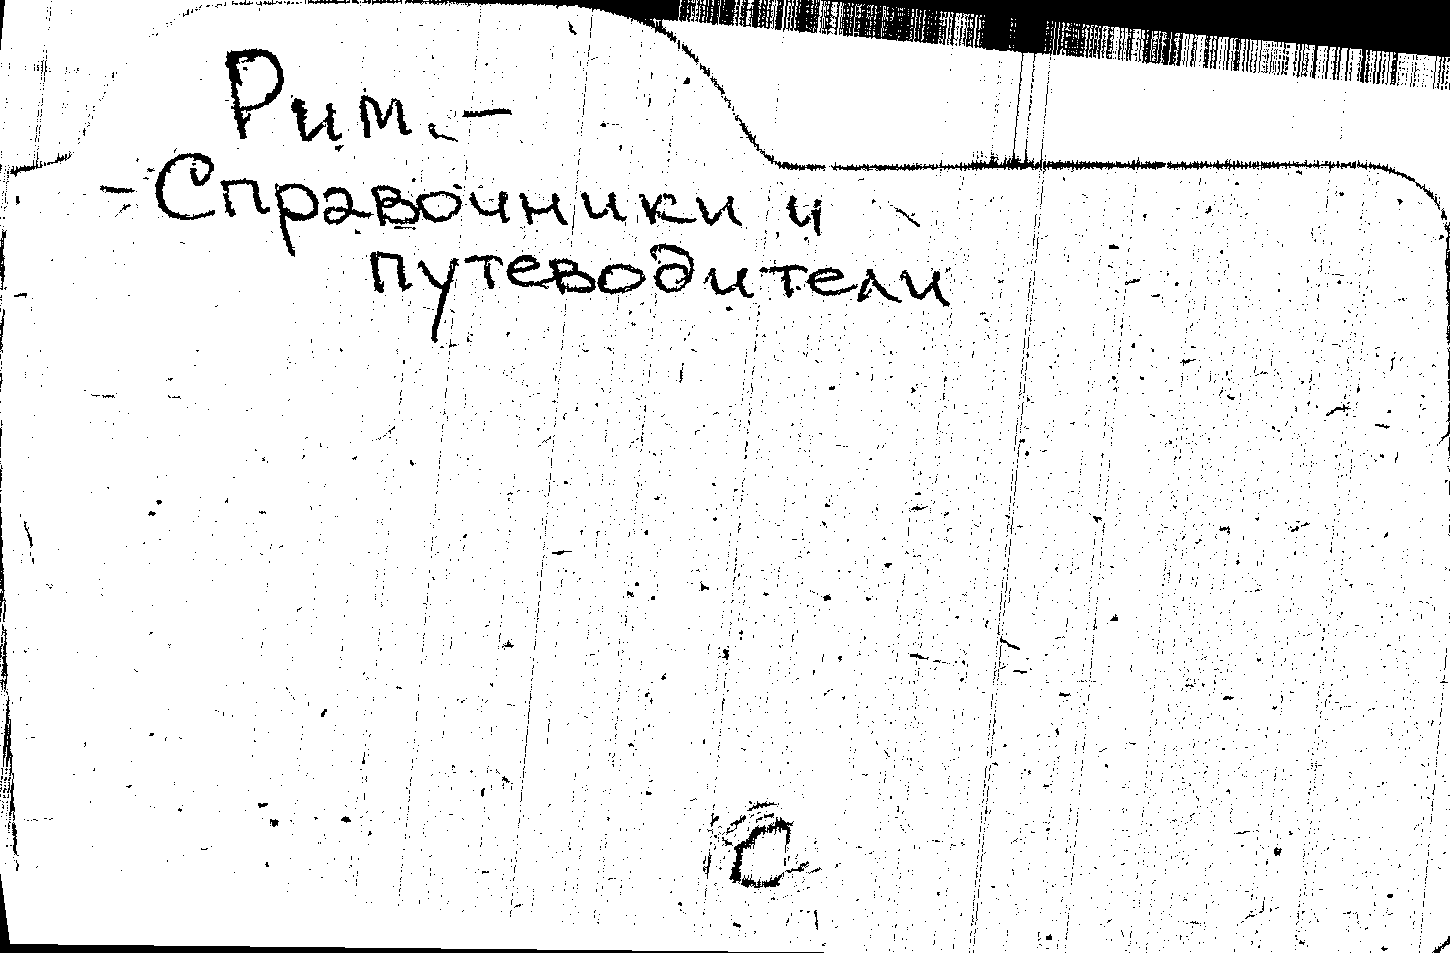 Рим. –
– Справочники и
путеводители